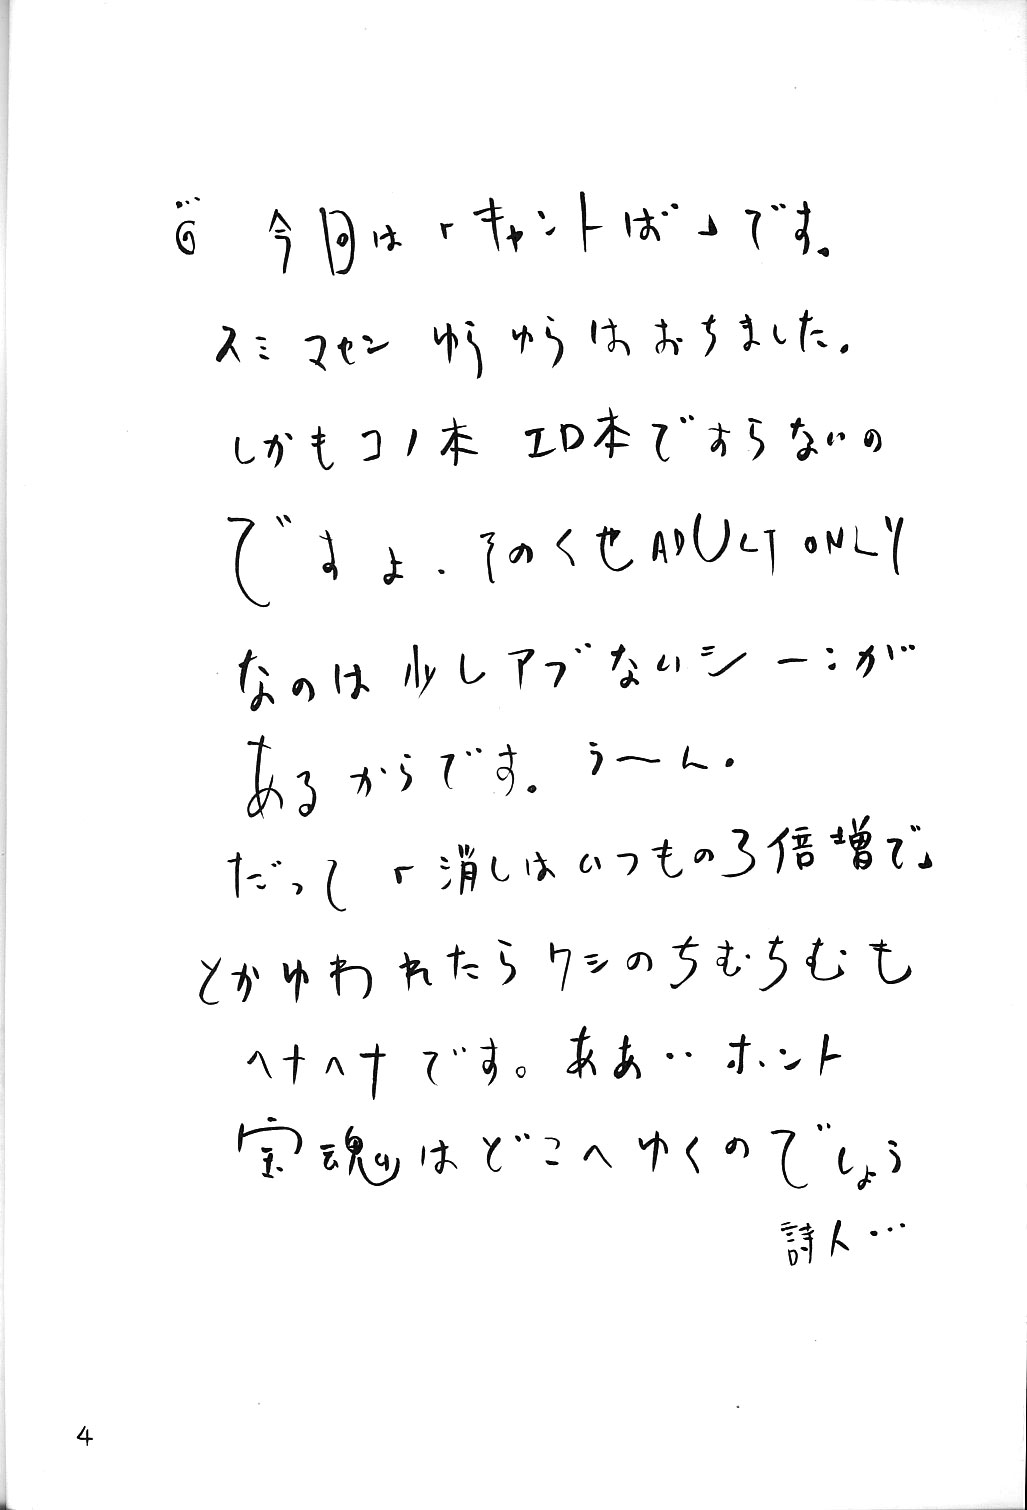 今回は「キャントば」です。
スミマセン ゆうゆらはおちました。
しかもコノ本 エロ本ですらないの
ですよ. そのくせ ADULT ONLY
なのは 少しアブないシーンが
あるからです。う〜ん.
だって「消しはいつもの3倍増で」
とかゆわれたらワシのちむちむも
ヘナヘナです。ああ‥ホント
宝魂はどこへゆくのでしょう
詩人…
4